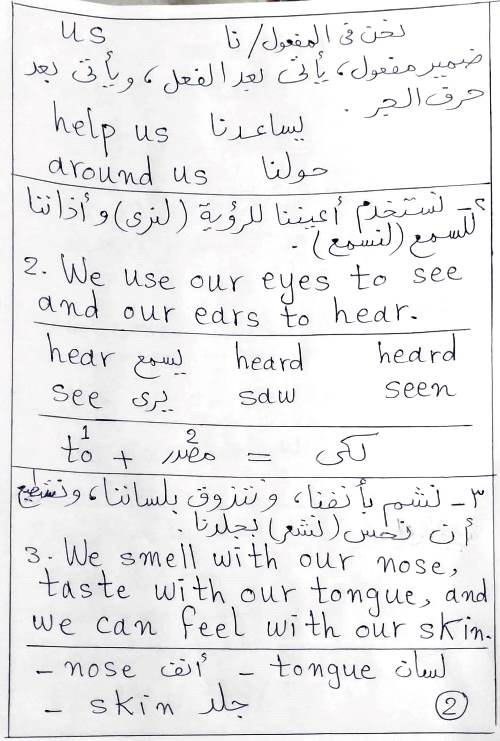 us نحن في المفعول/نا
ضمير مفعول، يأتى بعد الفعل، ويأتى بعد
حرف الجر.
help us يساعدنا
around us حولنا
٢- نستخدم أعيننا للرؤية (لنرى) و أذاننا
للسمع (لنسمع).
2. We use our eyes to see
and our ears to hear.
hear يسمع heard heard
see يرى saw seen
to 1 + مصدر 2 = لكى
٣- نشم بأنفنا، ونتذوق بلساننا، ونستطيع
أن نحس (نشعر) بجلدنا.
3. We smell with our nose,
taste with our tongue, and
we can feel with our skin.
- nose أنف - tongue لسان
- skin جلد 2